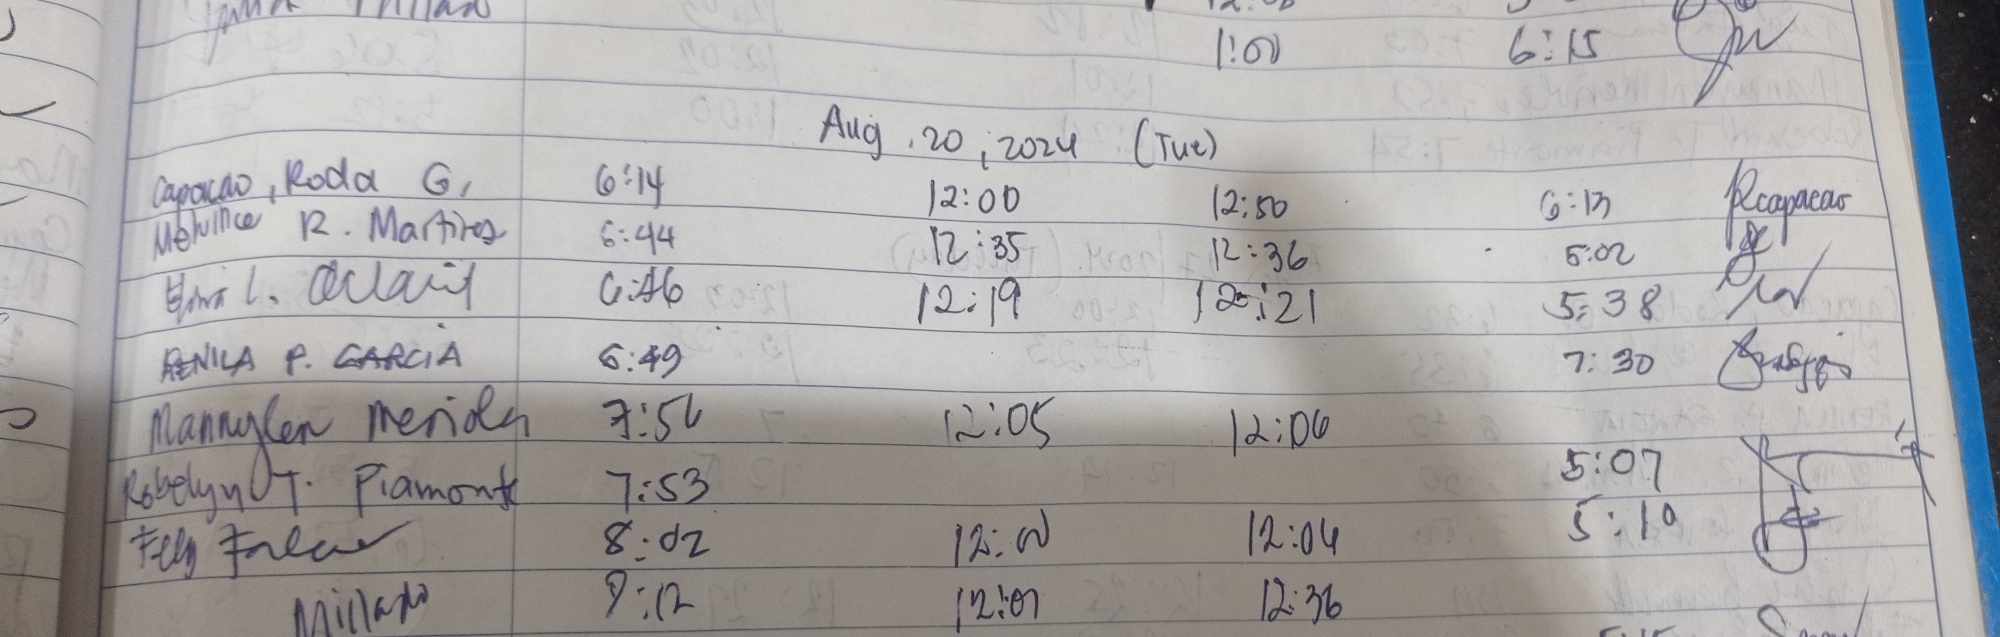 Millado 12:00
1:00 6:15
Aug. 20, 2024 (Tue)
Capacao, Roda G. 6:14 12:00 12:50 6:13 Rcapacao
Melvince R. Martires 6:44 12:35 12:36 5:02
L. 6:46 12:19 12:21 5:38
RENILA P. GARCIA 6:49 7:30
Mannylen Merida 7:56 12:05 12:06
Robelyn T. Piamonte 7:53 5:07
Fely 8:02 12:00 12:04 5:10
Millado 9:12 12:07 12:36